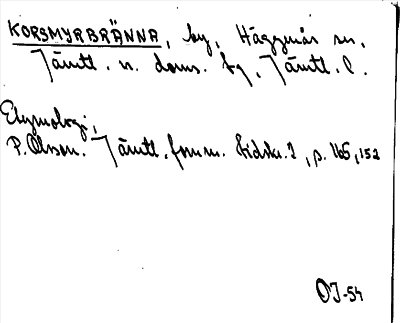 KORSMYRBRÄNNA, by, Häggenås sn,
Jämtl. n. doms. fg, Jämtl. l.
Etymologi,
P. Olsson. Jämtl. fornm. tidskr. 2, p. 165, 152
OJ-54